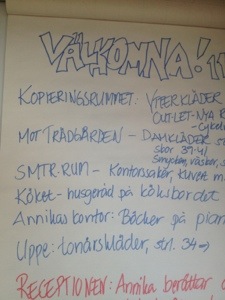 VÄLKOMNA!
KOPIERINGSRUMMET: YTTERKLÄDER
OUTLET-NYA
MOT TRÄDGÅRDEN - DAMKLÄDER
Skor 37-41
Smycken, väskor,
SMTR.RUM - Kontorssaker, kuvert m.
Köket - husgeråd på köksbordet
Annikas kontor: Böcker på
Uppe: tonårskläder, stl. 34→
RECEPTIONEN: Annika berättar